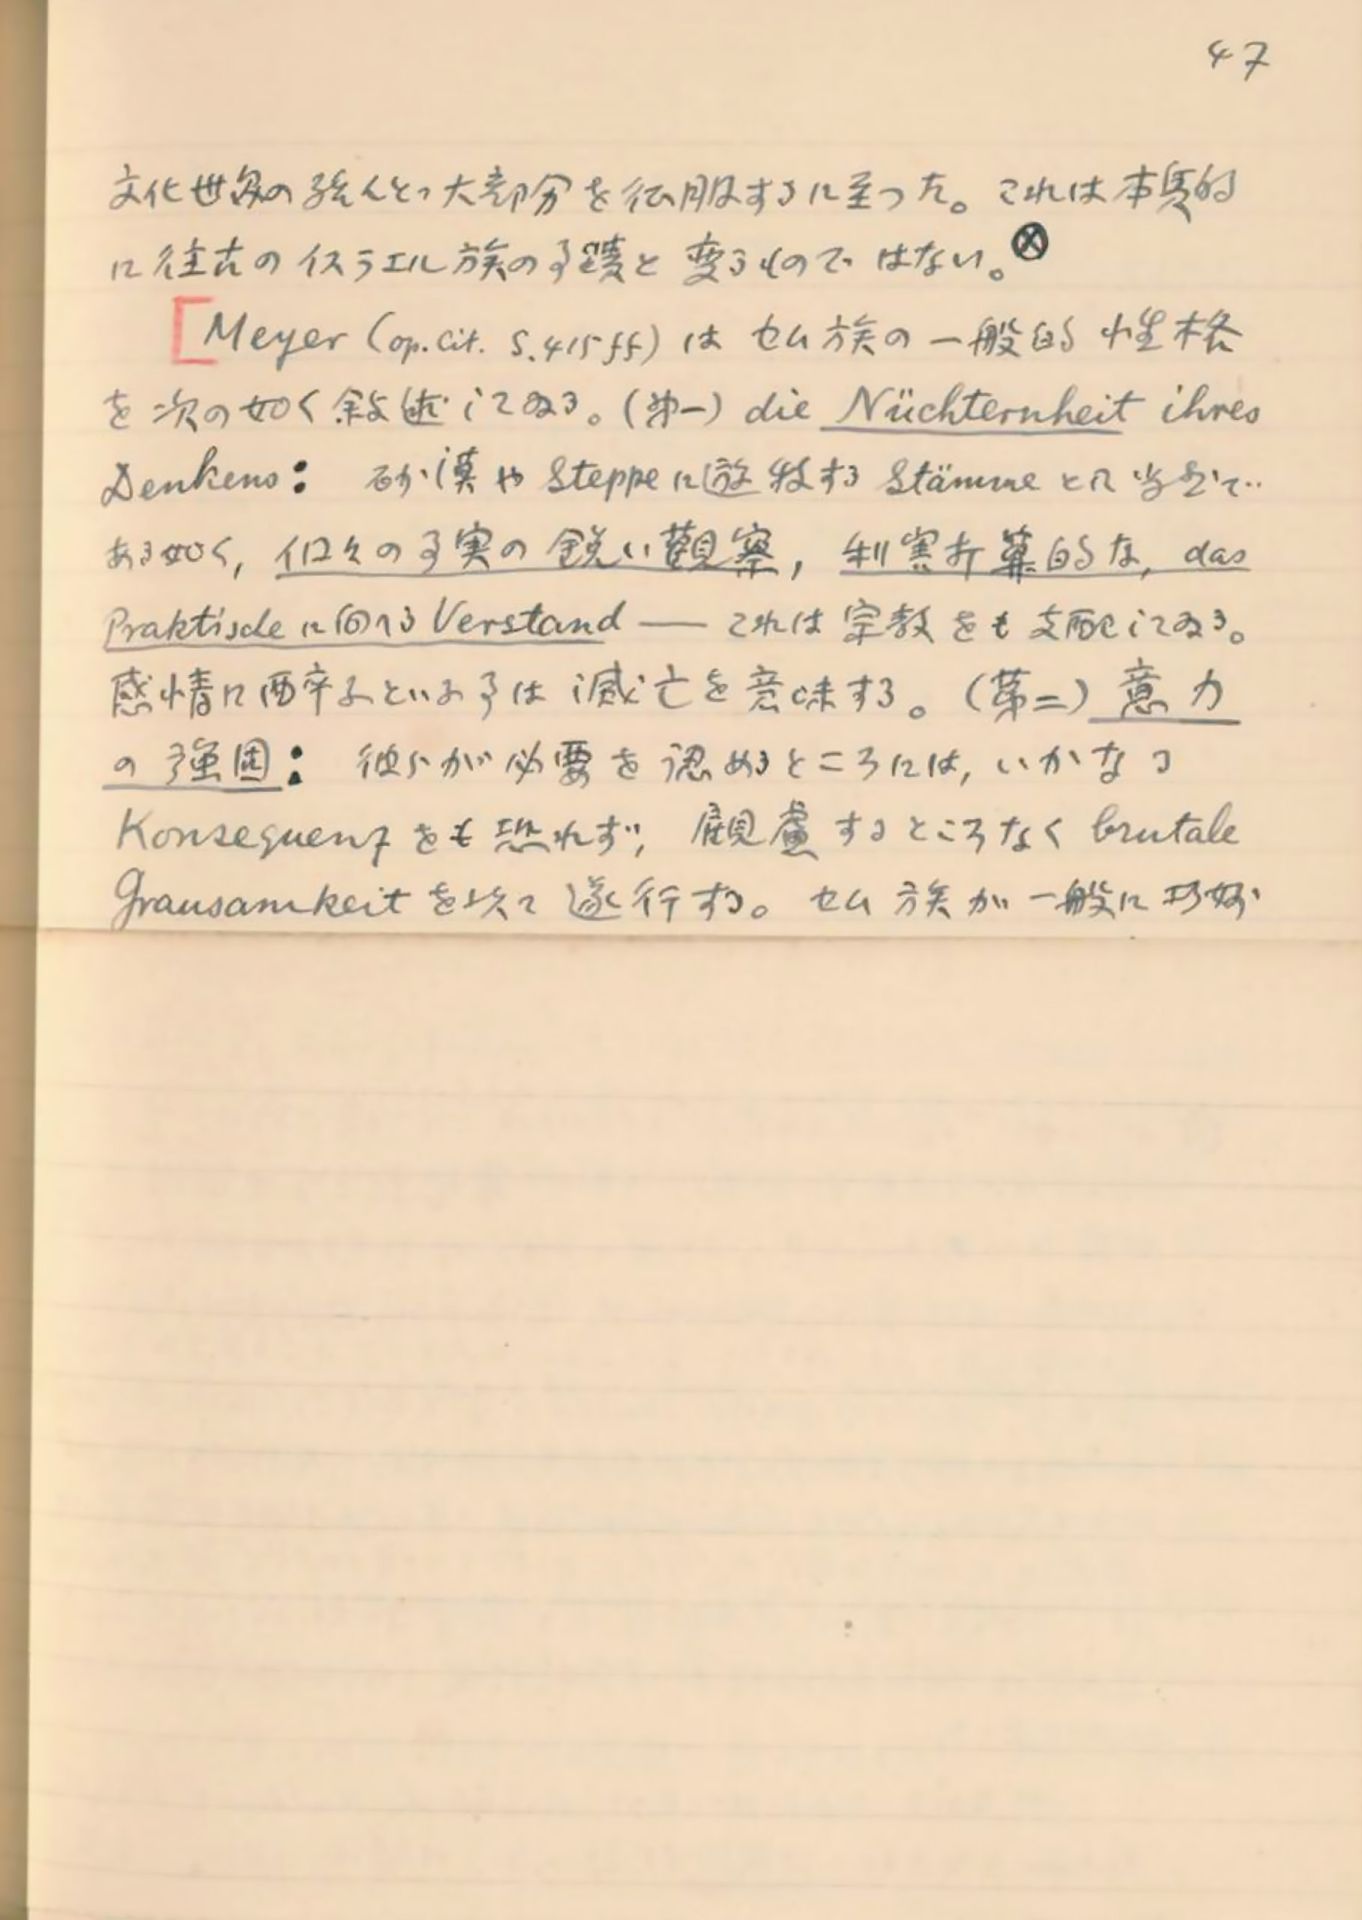 47
文化世界の殆んとっ大部分を征服するに至った。これは本質的
に往古のイスラエル族の事蹟と変るものではない。
[Meyer (op. cit. S. 415 ff) は セム族の一般的性格
を次の如く叙述してゐる。(第一) die Nüchternheit ihres
Denkens: 砂漠や Steppe に遊牧する Stämme とて当然で
ある如く, 個々の事実の鋭い観察, 利害打算的な, das
Praktische に向へる Verstand — これは宗教をも支配してゐる。
感情に酔ふといふ事は滅亡を意味する。(第二) 意力
の強固: 彼らが必要を認めるところには, いかなる
Konsequenz をも恐れず, 顧慮するところなく brutale
Grausamkeit を以て遂行する。セム族が一般に